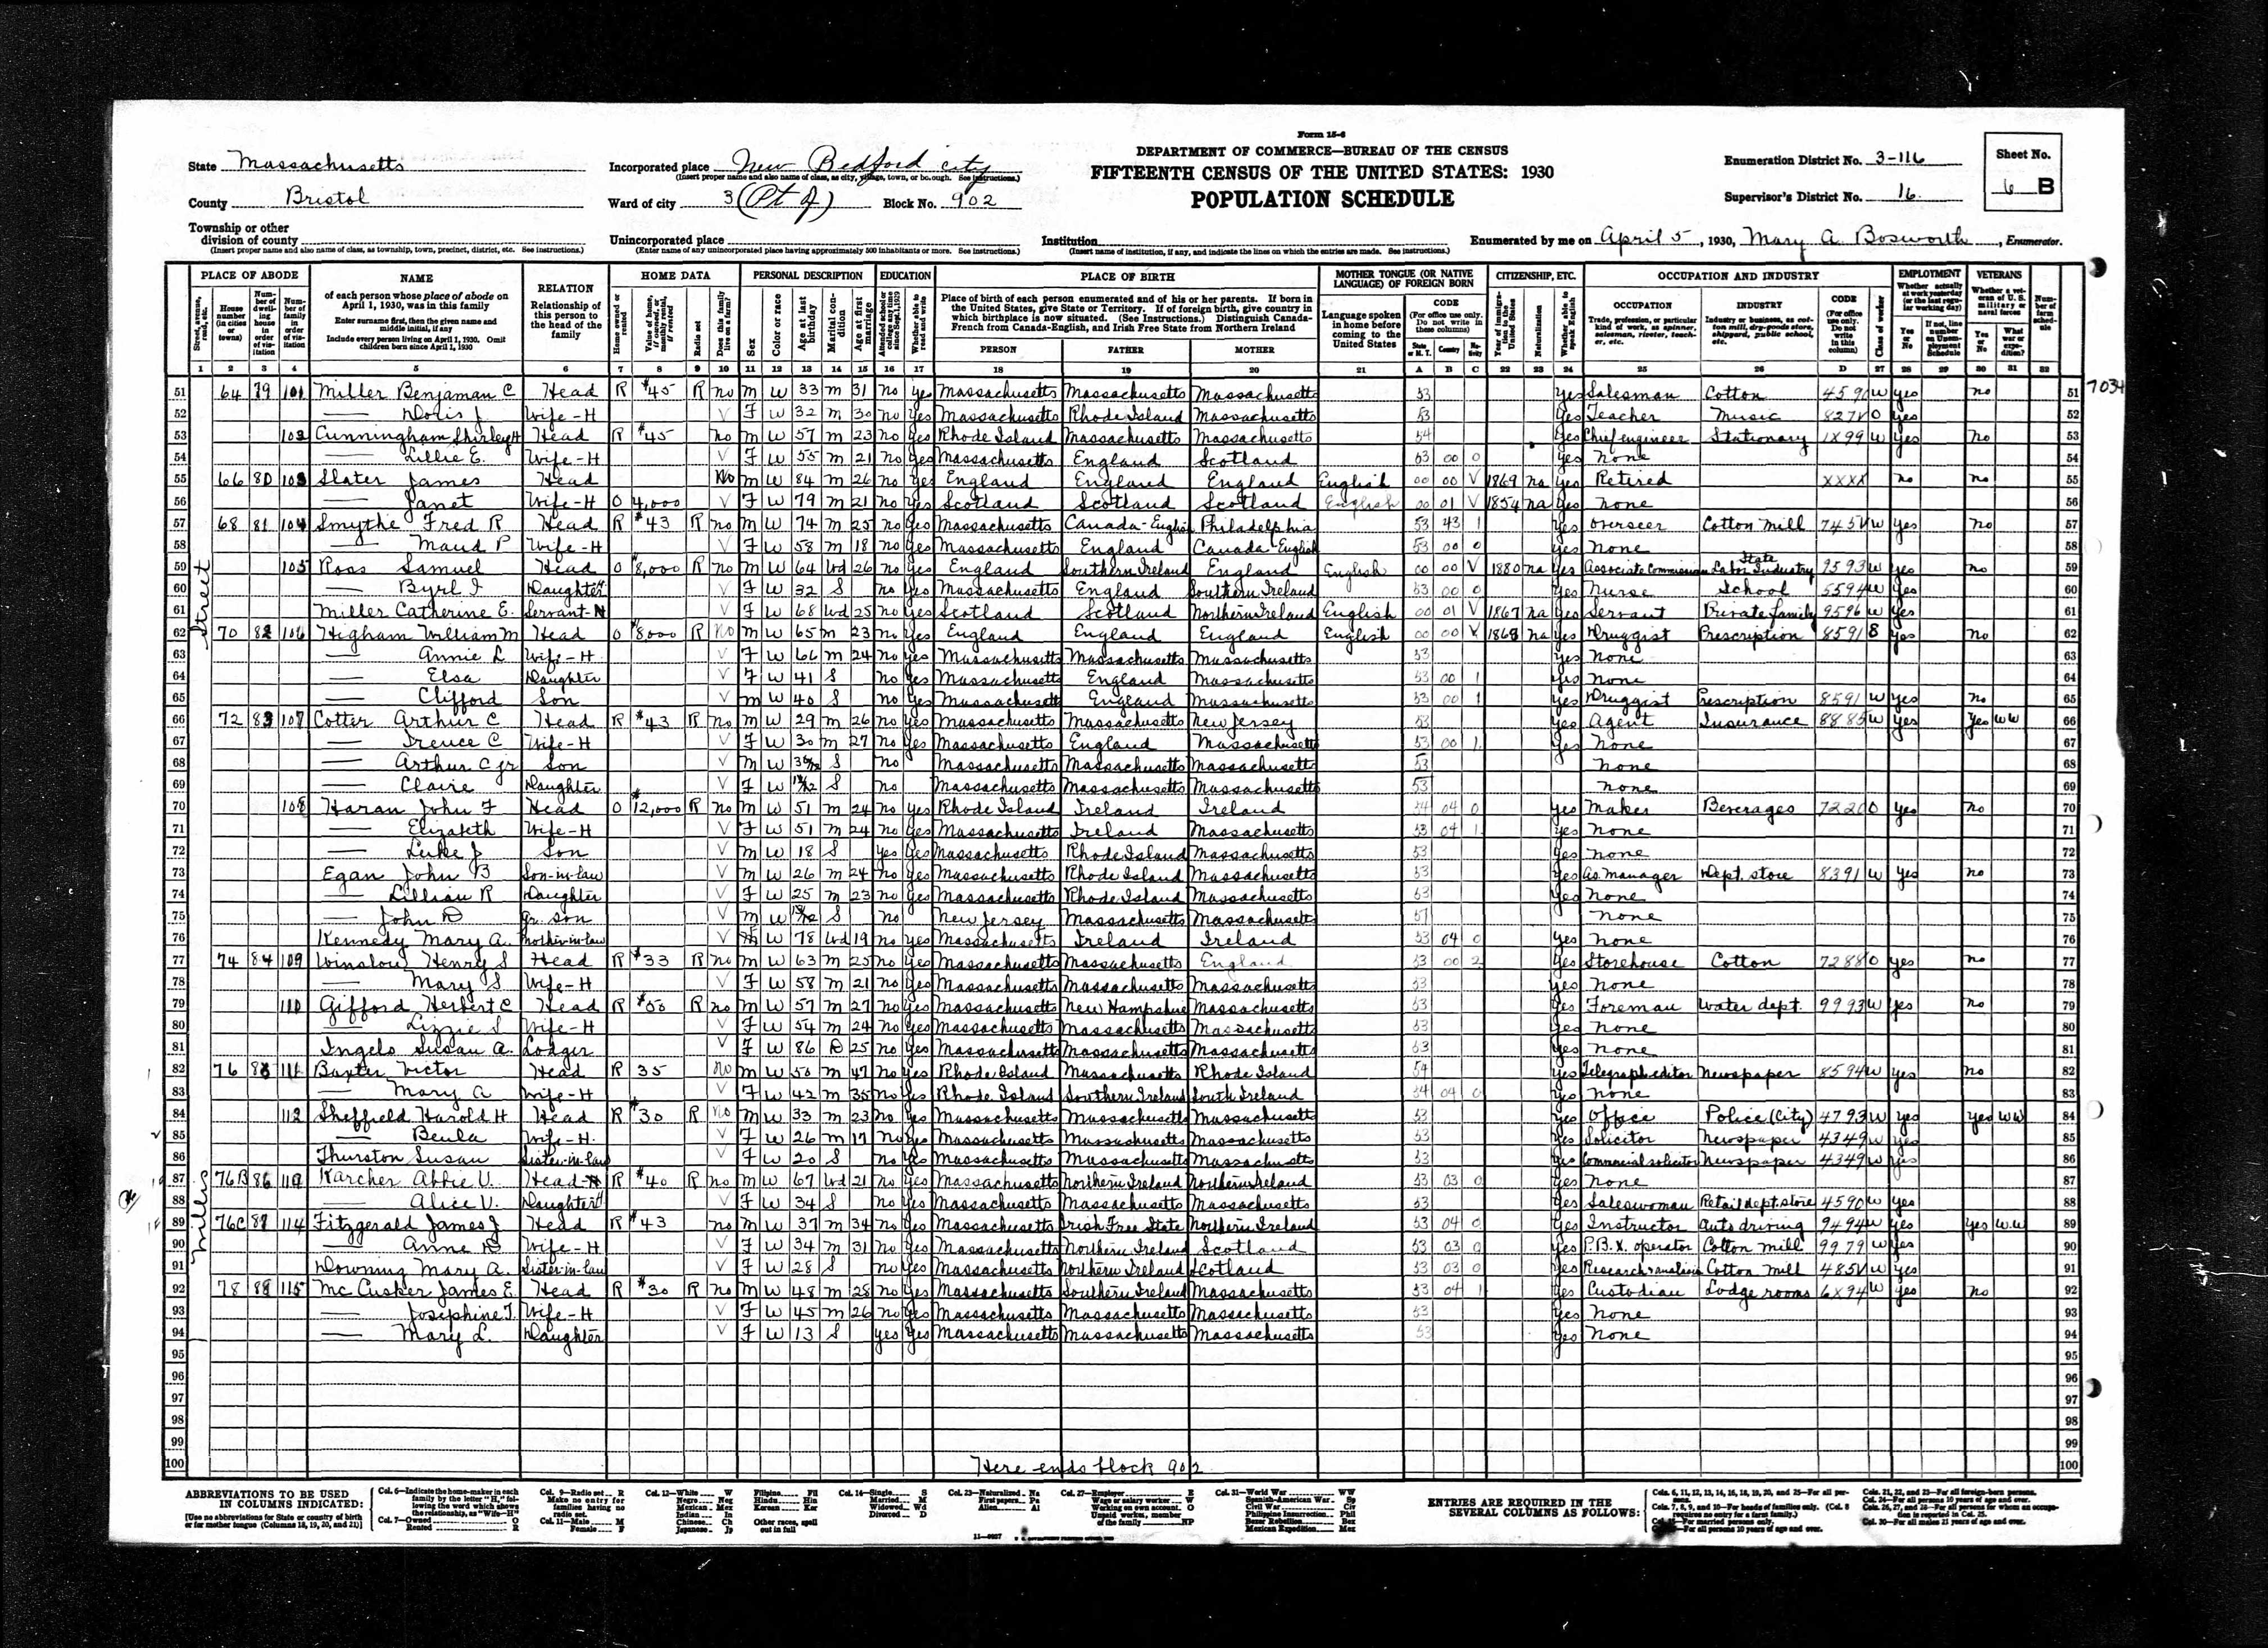 Form 15-6
DEPARTMENT OF COMMERCE—BUREAU OF THE CENSUS
FIFTEENTH CENSUS OF THE UNITED STATES: 1930
POPULATION SCHEDULE
State Massachusetts
County Bristol
Township or other division of county
(Insert proper name and also name of class, as township, town, precinct, district, etc. See instructions.)
Incorporated place New Bedford city
(Insert proper name and also name of class, as city, village, town, or borough. See instructions.)
Ward of city 3 (Pt of) Block No. 902
Unincorporated place
(Enter name of any unincorporated place having approximately 500 inhabitants or more. See instructions.)
Institution
(Insert name of institution, if any, and indicate the lines on which the entries are made. See instructions.)
Enumeration District No. 3-116
Supervisor's District No. 16.
Sheet No. 6 B
Enumerated by me on April 5, 1930, Mary A. Bosworth, Enumerator.
PLACE OF ABODE NAME RELATION HOME DATA PERSONAL DESCRIPTION EDUCATION PLACE OF BIRTH MOTHER TONGUE (OR NATIVE LANGUAGE) OF FOREIGN BORN CITIZENSHIP, ETC. OCCUPATION AND INDUSTRY EMPLOYMENT VETERANS
PERSON FATHER MOTHER
1 2 3 4 5 6 7 8 9 10 11 12 13 14 15 16 17 18 19 20 21 A B C 22 23 24 25 26 D 27 28 29 30 31 32
51 64 79 101 Miller Benjaman C Head R $45 R no M W 33 m 31 no yes Massachusetts Massachusetts Massachusetts 53 Yes Salesman Cotton 4590 W yes no 51 7034
52 — Doris J Wife-H V F W 32 m 30 no yes Massachusetts Rhode Island Massachusetts 53 Yes Teacher Music O yes 52
53 102 Cunningham Shirley H Head R $45 no M W 57 m 23 no Yes Rhode Island Massachusetts Massachusetts 54 Yes Chief engineer Stationary 1X99 W Yes no 53
54 — Lillie E. Wife-H V F W 55 m 21 no Yes Massachusetts England Scotland 53 00 0 yes none 54
55 66 80 103 Slater James Head No M W 84 m 26 no Yes England England England English 00 00 V 1869 na yes Retired XXXX no no 55
56 — Janet Wife-H O 4,000 V F W 79 m 21 no Yes Scotland Scotland Scotland English 00 01 V 1854 na Yes none 56
57 68 81 104 Smythe Fred R Head R $43 R no M W 74 m 25 no Yes Massachusetts Canada-English Philadelphia 53 43 1 Yes overseer Cotton mill 745V W yes no 57
58 — Maud P Wife-H V F W 58 m 18 no Yes Massachusetts England Canada-English 53 00 0 yes None 58
59 105 Ross Samuel Head O $8,000 R no M W 64 Wd 26 no Yes England Southern Ireland England English 00 00 V 1880 na Yes Associate Commissioner State Labor Industry 9593 W yes no 59
60 — Byrl I Daughter H V F W 32 S no Yes Massachusetts England Southern Ireland 53 00 0 yes Nurse School 5594 W Yes 60
61 Miller Catherine E. Servant V F W 68 Wd 25 no Yes Scotland Scotland Northern Ireland English 00 01 V 1867 na yes Servant Private family 9596 W Yes 61
62 70 82 106 Higham William M Head O $8000 R no M W 65 m 23 no Yes England England England English 00 00 V 1868 na Yes Druggist Prescription 8591 E yes no 62
63 — Annie L Wife-H V F W 66 m 24 no Yes Massachusetts Massachusetts Massachusetts 53 Yes none 63
64 — Elsa Daughter V F W 41 S no Yes Massachusetts England Massachusetts 53 00 1 yes none 64
65 — Clifford Son V M W 40 S no Yes Massachusetts England Massachusetts 53 00 1 yes Druggist Prescription 8591 W Yes no 65
66 72 83 107 Cotter Arthur C Head R $43 R no M W 29 m 26 no Yes Massachusetts Massachusetts New Jersey 53 Yes Agent Insurance 8885 W yes Yes WW 66
67 — Irence C Wife-H V F W 30 m 27 no Yes Massachusetts England Massachusetts 53 00 1 Yes none 67
68 — Arthur C jr Son V M W S no Massachusetts Massachusetts Massachusetts 53 none 68
69 — Claire Daughter V F W S no Massachusetts Massachusetts Massachusetts 53 none 69
70 108 Haran John F Head O $12,000 R no M W 51 m 24 no yes Rhode Island Ireland Ireland 54 04 0 yes Maker Beverages 7220 O yes no 70
71 — Elizabeth Wife-H V F W 51 m 24 no Yes Massachusetts Ireland Massachusetts 53 04 1 Yes none 71
72 — Luke J Son V M W 18 S Yes Yes Massachusetts Rhode Island Massachusetts 53 Yes none 72
73 Egan John B Son-in-law V M W 26 m 24 no Yes Massachusetts Rhode Island Massachusetts 53 Yes as. manager Dept. store 8391 W yes no 73
74 — Lillian R Daughter V F W 25 m 23 no Yes Massachusetts Rhode Island Massachusetts 53 Yes none 74
75 — John D Gr. son V M W S no New Jersey Massachusetts Massachusetts 57 none 75
76 Kennedy Mary A. Mother-in-law V W 78 Wd 19 no Yes Massachusetts Ireland Ireland 53 04 0 Yes none 76
77 74 84 109 Winslow Henry S Head R $33 R no M W 63 m 25 no Yes Massachusetts Massachusetts England 53 00 2 Yes Storehouse Cotton 7288 O yes no 77
78 — Mary S Wife-H V F W 58 m 21 no Yes Massachusetts Massachusetts Massachusetts 53 yes none 78
79 110 Gifford Herbert C Head R R no M W 57 m 27 no Yes Massachusetts New Hampshire Massachusetts 53 Yes Foreman water dept. 9993 W yes no 79
80 — Lizzie S Wife-H V F W 54 m 24 no Yes Massachusetts Massachusetts Massachusetts 53 Yes none 80
81 Ingels Susan A. Lodger V F W 86 D 25 no Yes Massachusetts Massachusetts Massachusetts 53 Yes none 81
82 76 111 Baxter Victor Head R 35 no M W 50 m 47 no Yes Rhode Island Massachusetts Rhode Island 54 Yes Telegraph editor newspaper 8594 W yes no 82
83 — Mary A Wife-H V F W 42 m 35 no Yes Rhode Island Southern Ireland South Ireland 54 04 0 Yes none 83
84 112 Sheffield Harold H Head R $30 R no M W 33 m 23 no Yes Massachusetts Massachusetts Massachusetts 53 yes Office Police (City) 4793 W yes yes WW 84
85 — Beula Wife-H. V F W 26 m 17 no Yes Massachusetts Massachusetts Massachusetts 53 Yes Solicitor newspaper 4349 W yes 85
86 Thurston Susan Sister-in-law V F W 20 S no Yes Massachusetts Massachusetts Massachusetts 53 Yes Commercial solicitor newspaper 4349 W yes 86
87 76B 86 Karcher Abbie V. Head R $40 R no M W 67 Wd 21 no Yes Massachusetts Northern Ireland Northern Ireland 53 03 0 Yes none 87
88 — Alice V. Daughter H V F W 34 S no Yes Massachusetts Massachusetts Massachusetts 53 Yes Saleswoman Retail dept. store 4590 W yes 88
89 76C 87 114 Fitzgerald James J Head R $43 no M W 37 m 34 no Yes Massachusetts Irish Free State Northern Ireland 53 04 0 Yes Instructor auto driving 9494 W yes Yes W.W 89
90 — Anne D Wife-H V F W 34 m 31 no Yes Massachusetts Northern Ireland Scotland 53 03 0 Yes P.B.X. operator Cotton mill 9979 W yes 90
91 Downing Mary A. Sister-in-law V F W 28 S no Yes Massachusetts Northern Ireland Scotland 53 03 0 Yes Cotton mill 485V W yes 91
92 78 88 115 McCusker James E. Head R $30 R no M W 48 m 28 no Yes Massachusetts Southern Ireland Massachusetts 53 04 1 yes Custodian Lodge rooms 6X94 W yes no 92
93 — Josephine T. Wife-H V F W 45 m 26 no Yes Massachusetts Massachusetts Massachusetts 53 Yes none 93
94 — Mary L. Daughter V F W 13 S yes Yes Massachusetts Massachusetts Massachusetts 53 Yes none 94
95 95
96 96
97 97
98 98
99 99
100 Here ends block 902 100
Millers Street
ABBREVIATIONS TO BE USED IN COLUMNS INDICATED:
[Use no abbreviations for State or country of birth or for mother tongue (Columns 18, 19, 20, and 21)]
ENTRIES ARE REQUIRED IN THE SEVERAL COLUMNS AS FOLLOWS: